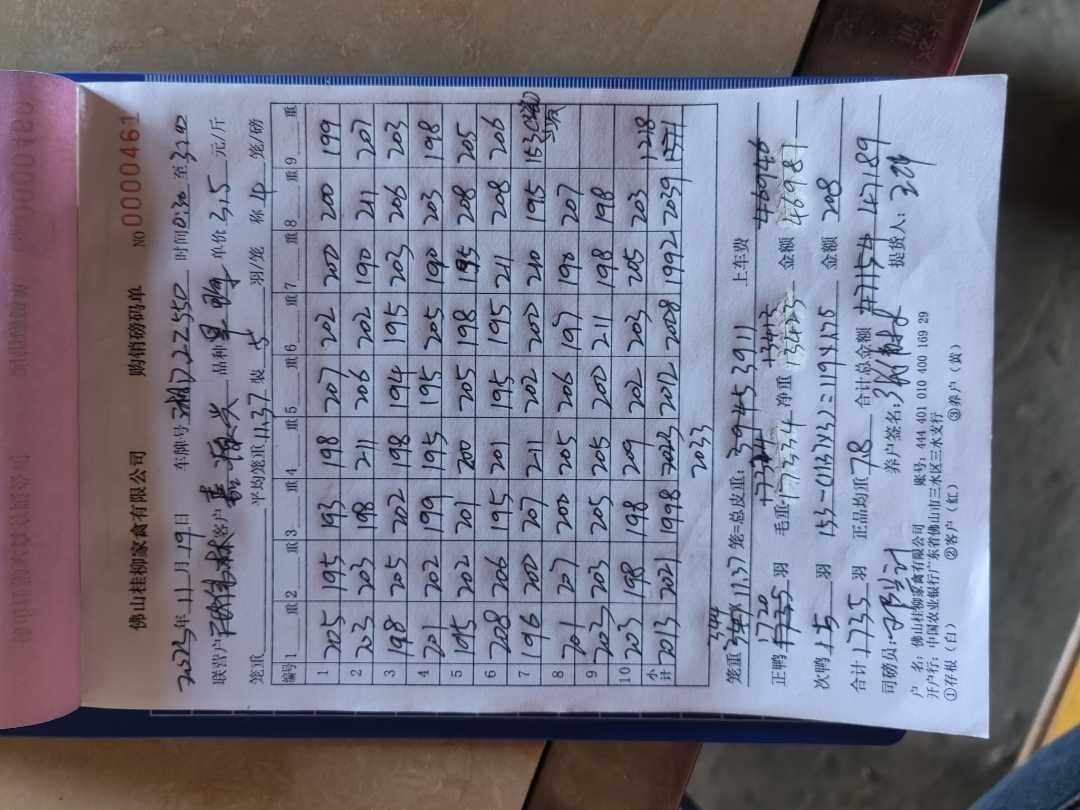 佛山桂柳家禽有限公司 购销磅码单 NO 0000461
2023年11月19日 车牌号 22550 时间0:30至3:20
联营户 客户 品种 单价3.15元/斤
笼重 平均笼重11.37 装5羽/笼 称4笼/磅
编号 1 重 2 重 3 重 4 重 5 重 6 重 7 重 8 重 9 重
1 205 195 193 198 207 202 200 200 199
2 203 203 198 211 206 202 190 211 207
3 198 205 202 198 194 195 203 206 203
4 201 202 199 195 195 205 190 203 198
5 195 202 201 200 205 198 195 208 205
6 208 206 195 201 195 195 211 208 206
7 196 200 207 211 202 200 210 195 153
8 201 207 200 205 206 197 190 207
9 203 203 205 205 200 211 198 198
10 203 198 198 209 202 203 205 203 1218
小计 2013 2021 1998 2023 2012 2008 1992 2039 1371
2033
344
笼重 X11.37笼=总皮重: 3945 3911 上车费
1720 17324 46946
正鸭1735羽 毛重:17334 净重 13423 金额 46981
次鸭15羽 153-01.3)X3.2=1194.175 金额 208
合计1735羽 正品均重7.8 合计总金额 47154 47189
司磅员: 养户签名: 提货人:
户 名:佛山桂柳家禽有限公司 账号:444 401 010 400 169 29
开户行:中国农业银行广东省佛山市三水区三水支行
①存根(白) ②客户(红) ③养户(黄)